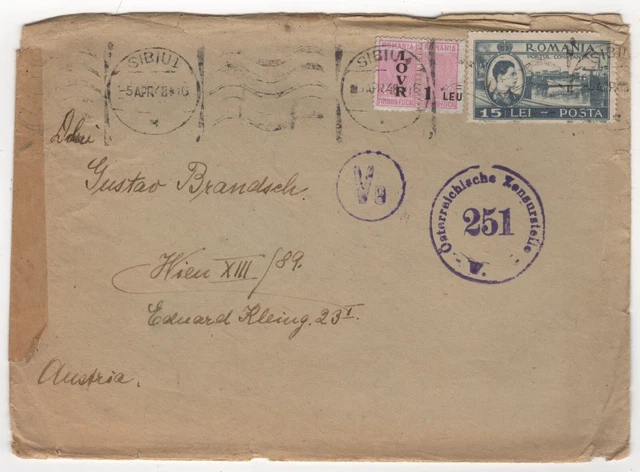 SIBIU 1
-5 APR 48 * 16
SIBIU
APR 48 16
ROMANIA
ROMANIA
I.O.V.R
1 LEU
ROMANIA
PORTUL CONSTANTA
15 LEI - POSTA
Gustav Brandsch.
Vg
Österreichische Zensurstelle
251
W.
Wien XIII/89.
Eduard Kleing. 23 I.
Austria.